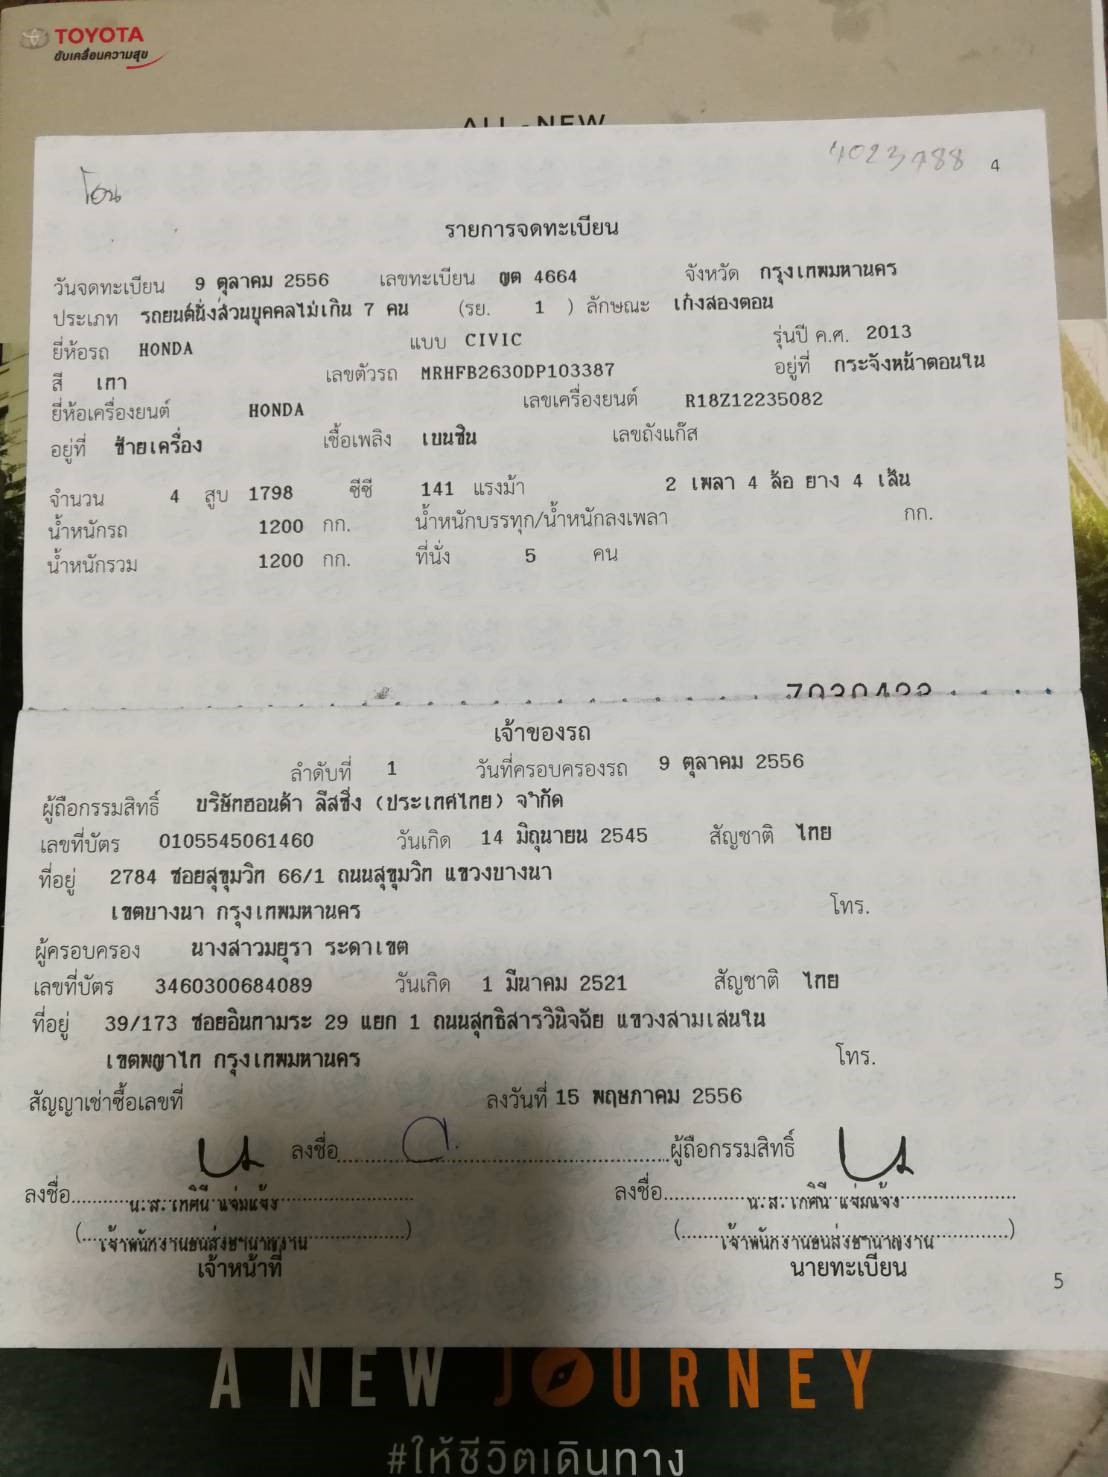 TOYOTA
ขับเคลื่อนความสุข
ALL-NEW
โอน
4
รายการจดทะเบียน
วันจดทะเบียน 9 ตุลาคม 2556 เลขทะเบียน ญต 4664 จังหวัด กรุงเทพมหานคร
ประเภท รถยนต์นั่งส่วนบุคคลไม่เกิน 7 คน (รย. 1 ) ลักษณะ เก๋งสองตอน
ยี่ห้อรถ HONDA แบบ CIVIC รุ่นปี ค.ศ. 2013
สี เทา เลขตัวรถ MRHFB2630DP103387 อยู่ที่ กระจังหน้าตอนใน
ยี่ห้อเครื่องยนต์ HONDA เลขเครื่องยนต์ R18Z12235082
อยู่ที่ ซ้ายเครื่อง เชื้อเพลิง เบนซิน เลขถังแก๊ส
จำนวน 4 สูบ 1798 ซีซี 141 แรงม้า 2 เพลา 4 ล้อ ยาง 4 เส้น
น้ำหนักรถ 1200 กก. น้ำหนักบรรทุก/น้ำหนักลงเพลา กก.
น้ำหนักรวม 1200 กก. ที่นั่ง 5 คน
เจ้าของรถ
ลำดับที่ 1 วันที่ครอบครองรถ 9 ตุลาคม 2556
ผู้ถือกรรมสิทธิ์ บริษัทฮอนด้า ลีสซิ่ง (ประเทศไทย) จำกัด
เลขที่บัตร 0105545061460 วันเกิด 14 มิถุนายน 2545 สัญชาติ ไทย
ที่อยู่ 2784 ซอยสุขุมวิท 66/1 ถนนสุขุมวิท แขวงบางนา
เขตบางนา กรุงเทพมหานคร โทร.
ผู้ครอบครอง นางสาวมยุรา ระดาเขต
เลขที่บัตร 3460300684089 วันเกิด 1 มีนาคม 2521 สัญชาติ ไทย
ที่อยู่ 39/173 ซอยอินทามระ 29 แยก 1 ถนนสุทธิสารวินิจฉัย แขวงสามเสนใน
เขตพญาไท กรุงเทพมหานคร โทร.
สัญญาเช่าซื้อเลขที่ ลงวันที่ 15 พฤษภาคม 2556
ลงชื่อ ผู้ถือกรรมสิทธิ์
ลงชื่อ น.ส.เกศินี แจ่มแจ้ง ลงชื่อ น.ส.เกศินี แจ่มแจ้ง
(เจ้าพนักงานขนส่งชำนาญงาน) (เจ้าพนักงานขนส่งชำนาญงาน)
เจ้าหน้าที่ นายทะเบียน
5
A NEW JOURNEY
#ให้ชีวิตเดินทาง